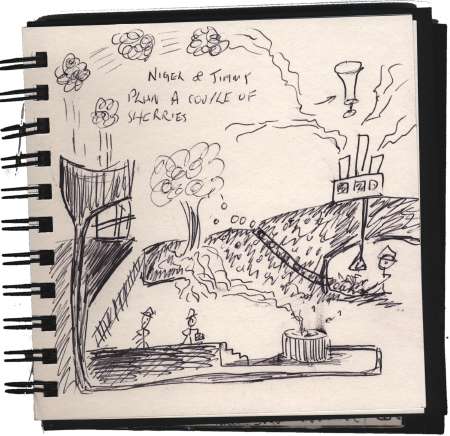 NIGEL & JIMMY
PLAN A COUPLE OF
SHERRIES